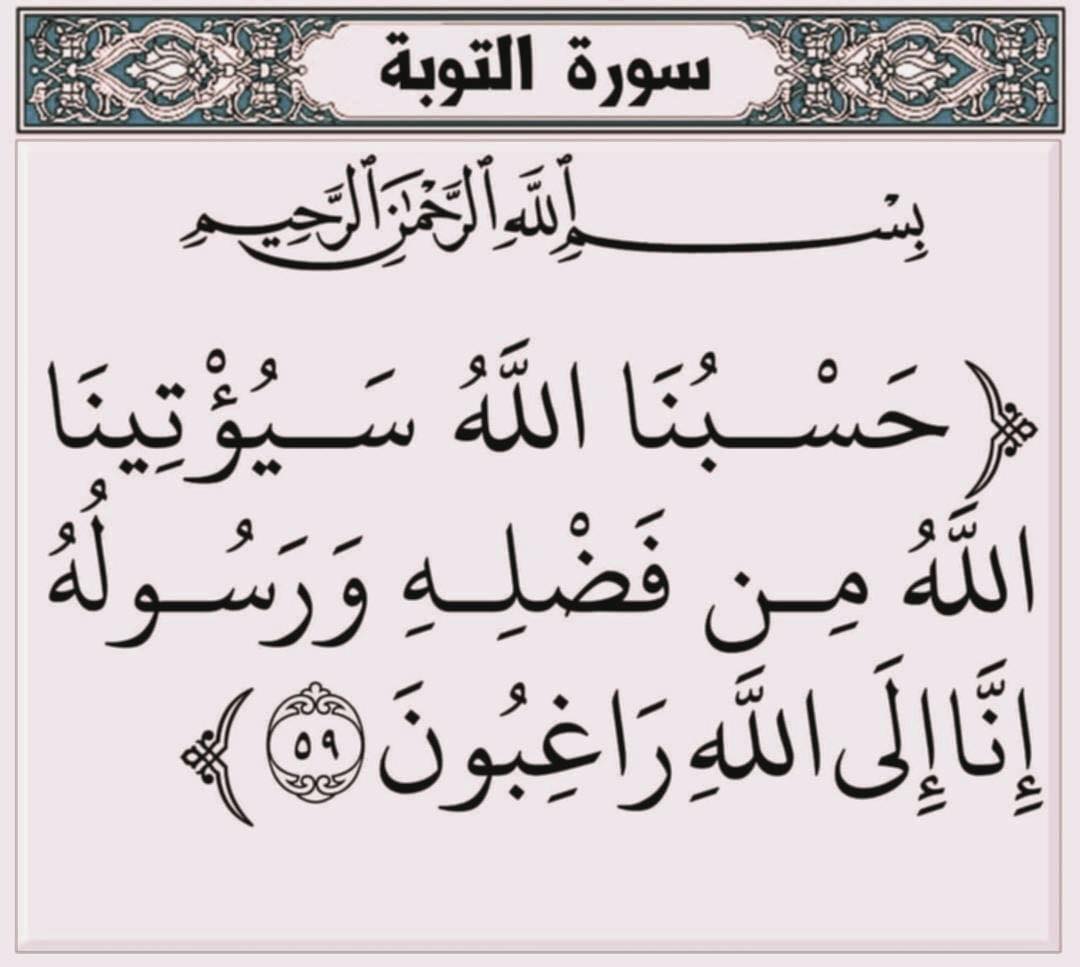 سورة التوبة
بِسْمِ ٱللَّهِ ٱلرَّحْمَٰنِ ٱلرَّحِيمِ
﴿حَسْبُنَا اللَّهُ سَيُؤْتِينَا
اللَّهُ مِن فَضْلِهِ وَرَسُولُهُ
إِنَّا إِلَى اللَّهِ رَاغِبُونَ ٥٩﴾